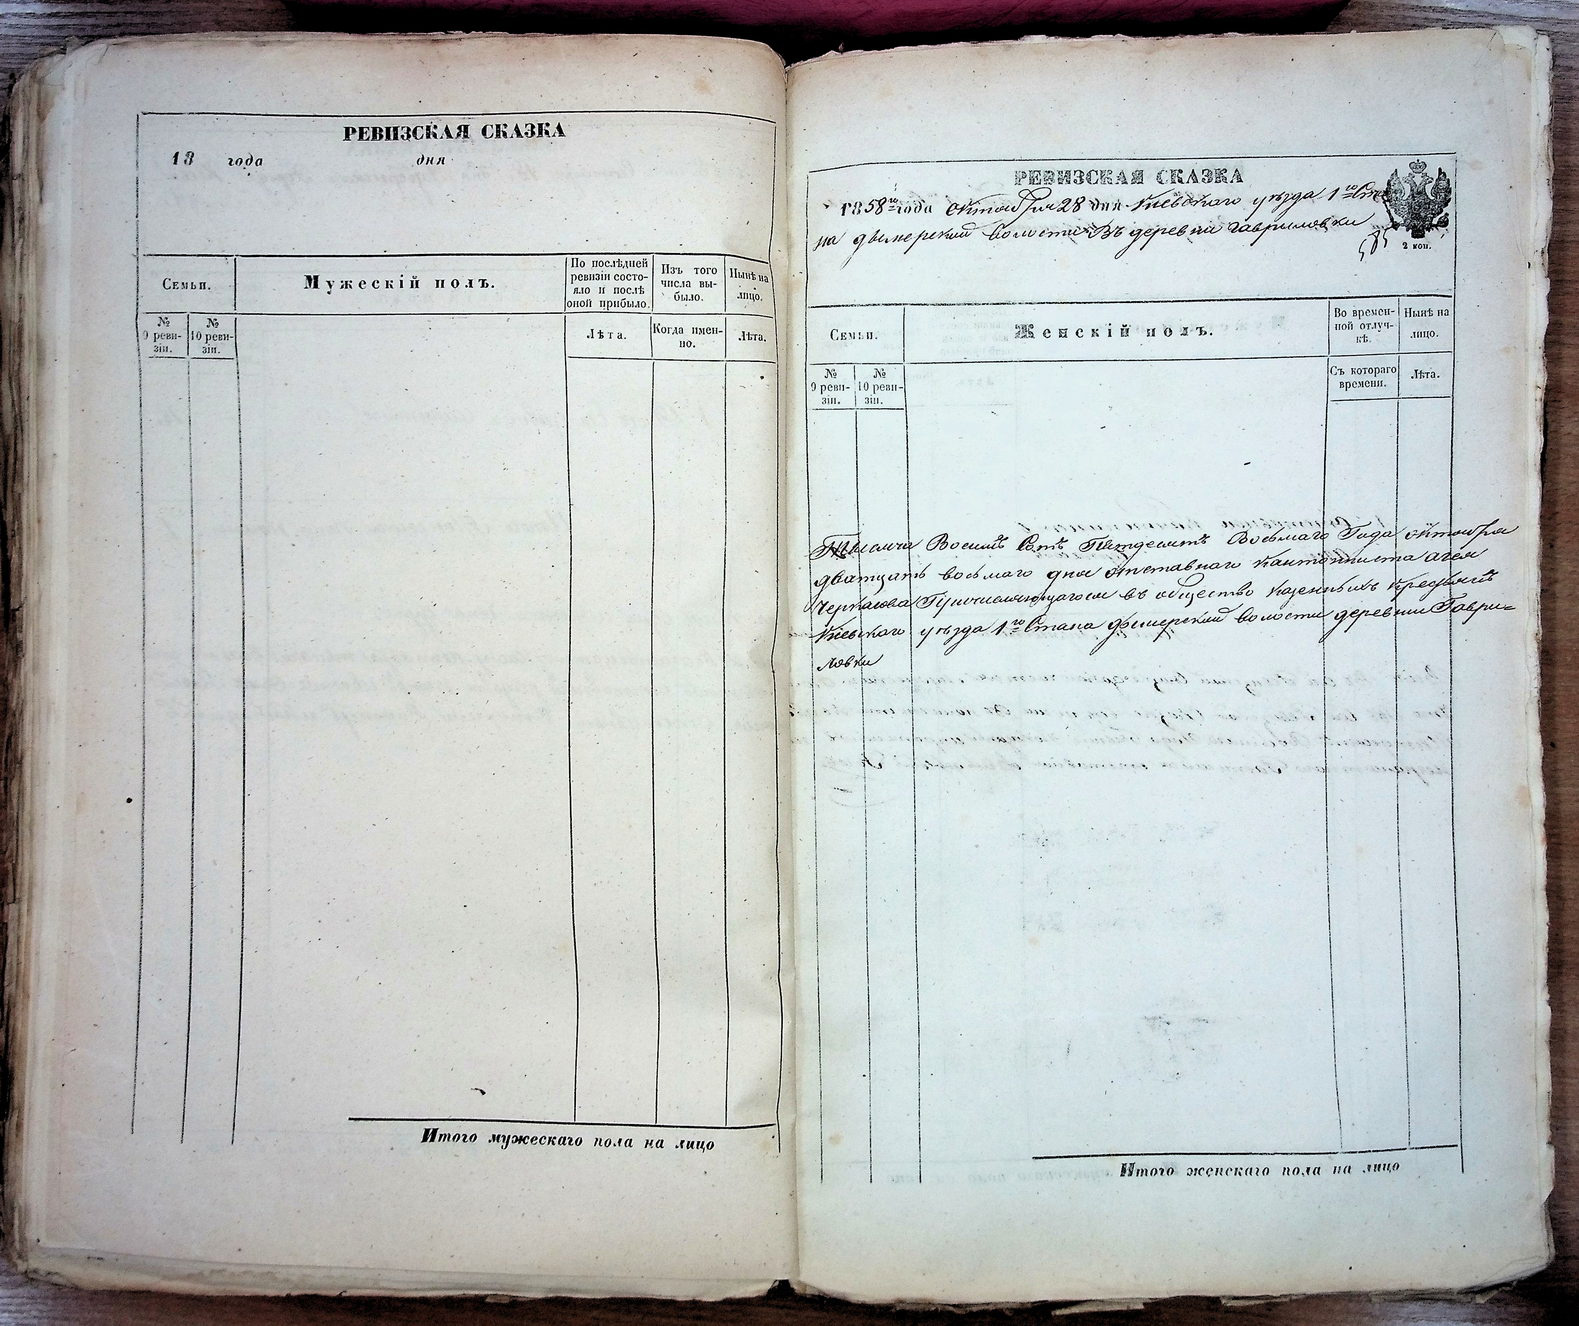 РЕВИЗСКАЯ СКАЗКА
18 года дня
Семьи.
Мужескій полъ.
По послѣдней ревизіи состояло и послѣ оной прибыло.
Изъ того числа выбыло.
Нынѣ на лицо.
№ 9 ревизіи.
№ 10 ревизіи.
Лѣта.
Когда именно.
Лѣта.
Итого мужескаго пола на лицо
РЕВИЗСКАЯ СКАЗКА
1858го года октября 28 дня Кіевскаго уѣзда 1го Ста
на дымерской волости Въ деревни гавриловки
2 коп.
Семьи.
Женскій полъ.
Во временной отлучкѣ.
Нынѣ на лицо.
№ 9 ревизіи.
№ 10 ревизіи.
Съ котораго времени.
Лѣта.
Тысяча Восемь Сотъ Восьмаго Года октября
восьмаго дня отставнаго кантониста
въ общество казенныхъ
Кіевскаго уѣзда 1го Стана дымерской волости деревни Гаври=
ловки
Итого женскаго пола на лицо